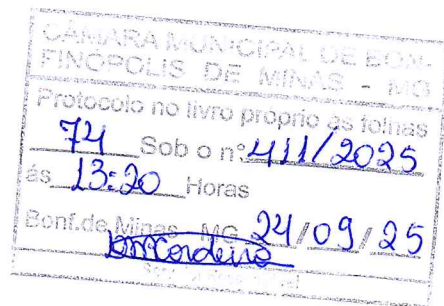 CÂMARA MUNICIPAL DE BON-
FINÓPOLIS DE MINAS - MG
Protocolo no livro proprio as folhas
74 Sob o nº 411/2025
ás 13:20 Horas
Bonf.de Minas - MG 24/09/25